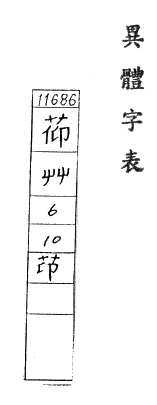 異體字表
11686
茚
艸
6
10